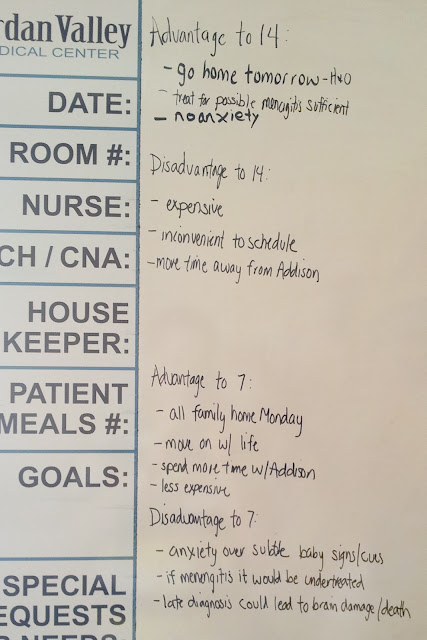 rdan Valley
DICAL CENTER
DATE:
ROOM #:
NURSE:
CH / CNA:
HOUSE
KEEPER:
PATIENT
MEALS #:
GOALS:
SPECIAL
EQUESTS
Advantage to 14:
- go home tomorrow -
- treat for possible menengitis sufficient
- no anxiety
Disadvantage to 14:
- expensive
- inconvenient to schedule
- more time away from Addison
Advantage to 7:
- all family home Monday
- move on w/ life
- spend more time w/Addison
- less expensive
Disadvantage to 7:
- anxiety over subtle baby signs/cues
- if menengitis it would be undertreated
- late diagnosis could lead to brain damage/death